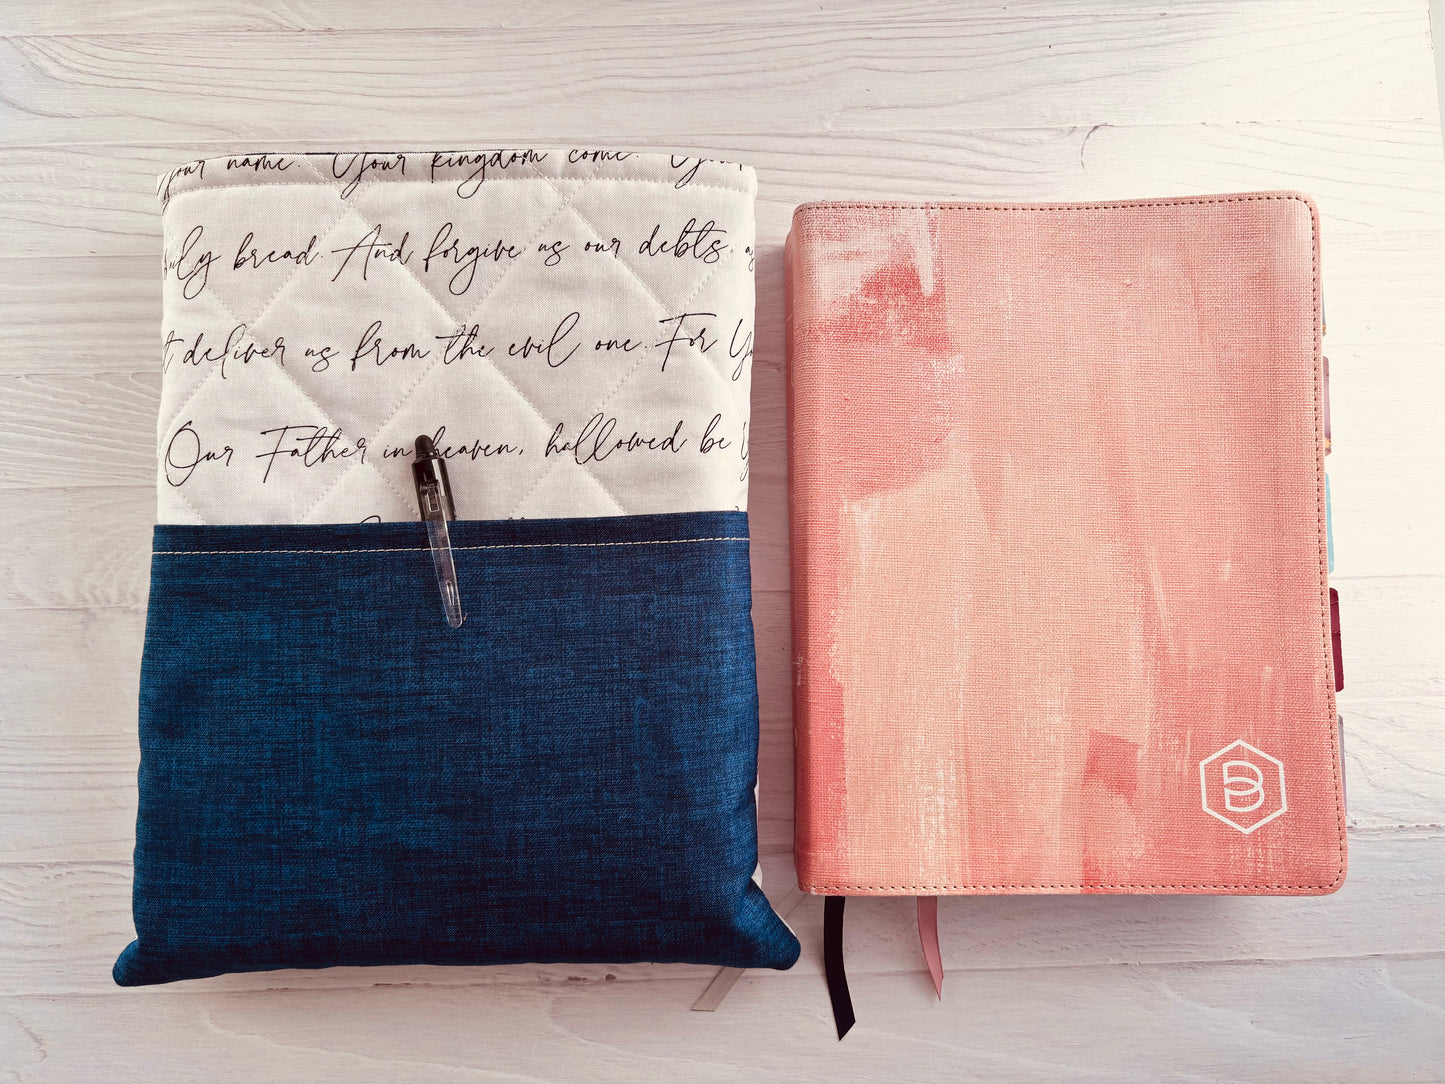 your name. Your kingdom come.
daily bread. And forgive us our debts, as
deliver us from the evil one. For
Our Father in heaven, hallowed be
B